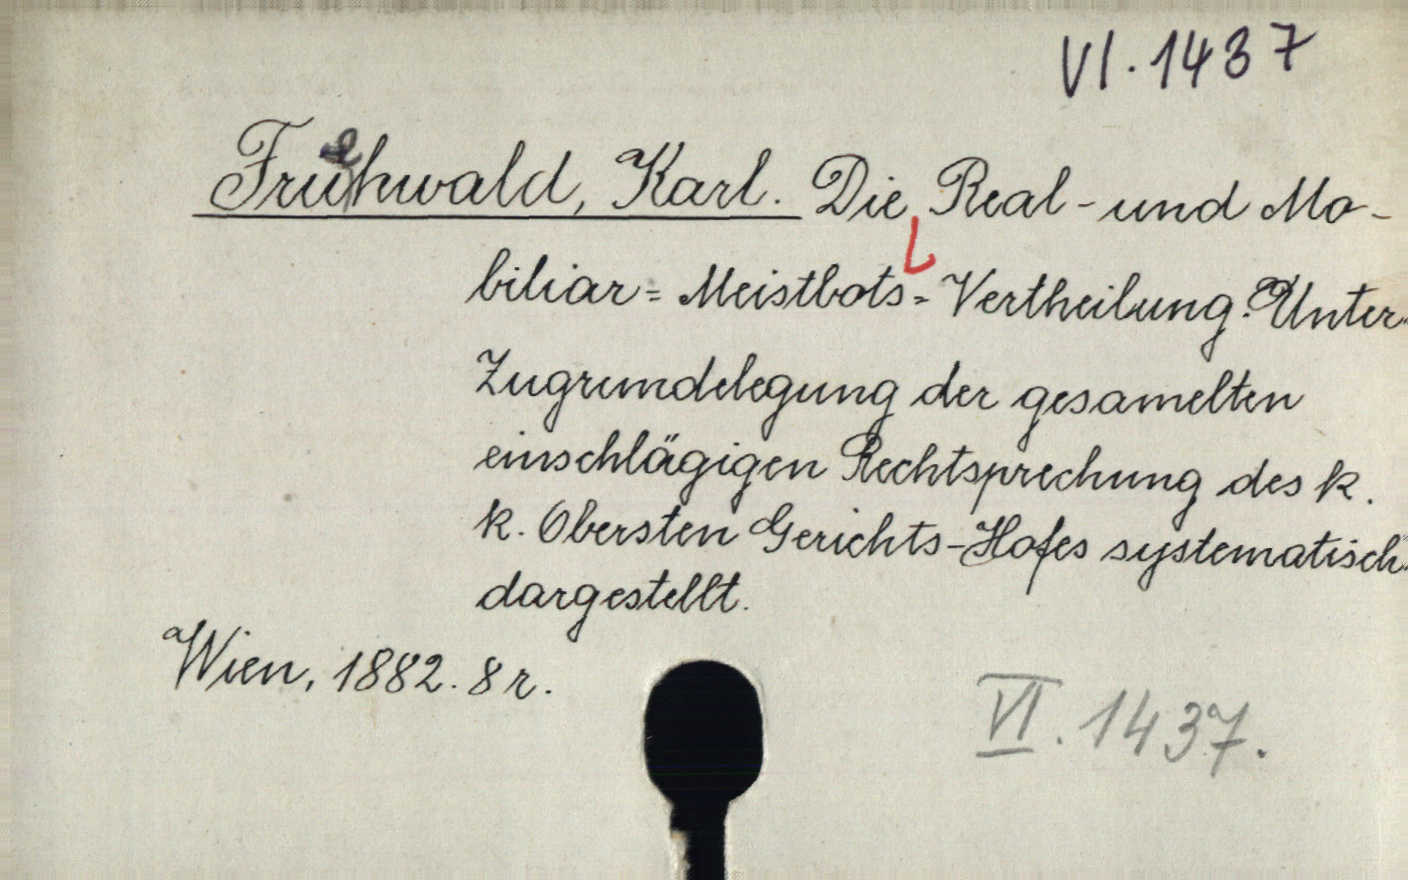 VI.1437
Fruehwald, Karl. Die Real- und Mo-
biliar= Meistbots= Vertheilung. Unter
Zugrundelegung der gesamelten
einschlägigen Rechtsprechung des k.
k. Obersten Gerichts-Hofes systematisch
dargestellt.
Wien, 1882. 8r.
VI. 1437.